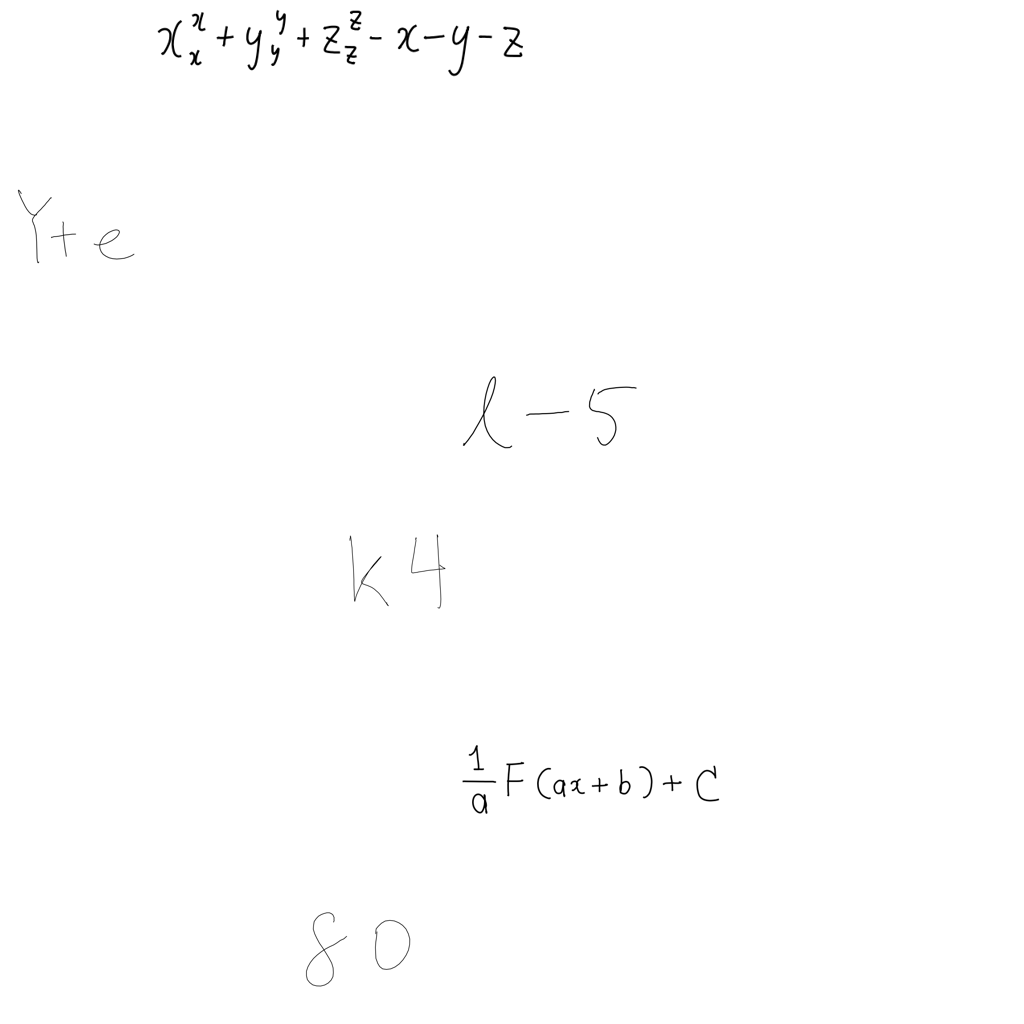 x_x^x + y_y^y + z_z^z - x - y - z
Y + e
l - 5
k 4
\frac{1}{a} F(ax + b) + C
8 0